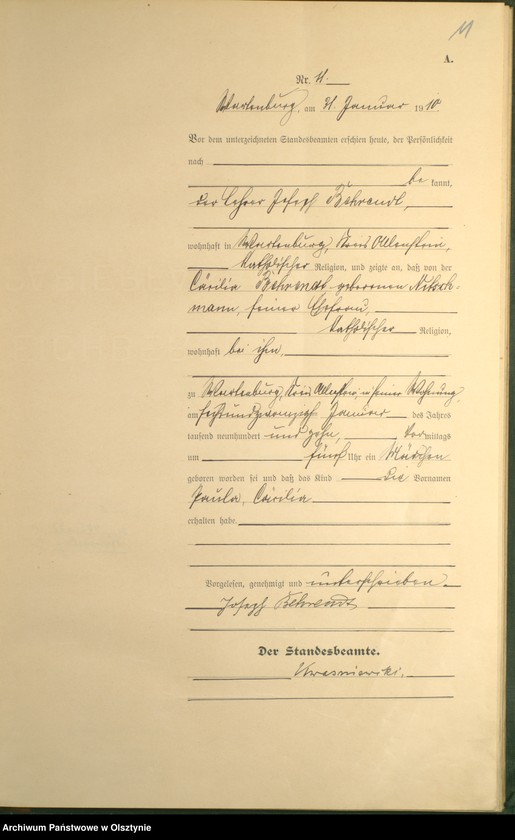 11
A.
Nr. 11.
Wartenburg, am 31. Januar 1910.
Vor dem unterzeichneten Standesbeamten erschien heute, der Persönlichkeit
nach
be kannt,
der Lehrer Joseph Behrendt,
wohnhaft in Wartenburg, Kreis Allenstein,
katholischer Religion, und zeigte an, daß von der
Cäcilia Behrendt geborenen Nitsch-
mann, seiner Ehefrau,
katholischer Religion,
wohnhaft bei ihm,
zu Wartenburg, Kreis Allenstein in seiner Wohnung,
am sechsundzwanzigsten Januar des Jahres
tausend neunhundert und zehn, Vormittags
um fünf Uhr ein Mädchen
geboren worden sei und daß das Kind die Vornamen
Paula, Cäcilia
erhalten habe.
Vorgelesen, genehmigt und unterschrieben
Joseph Behrendt
Der Standesbeamte.
Kwasniewski.
Archiwum Państwowe w Olsztynie